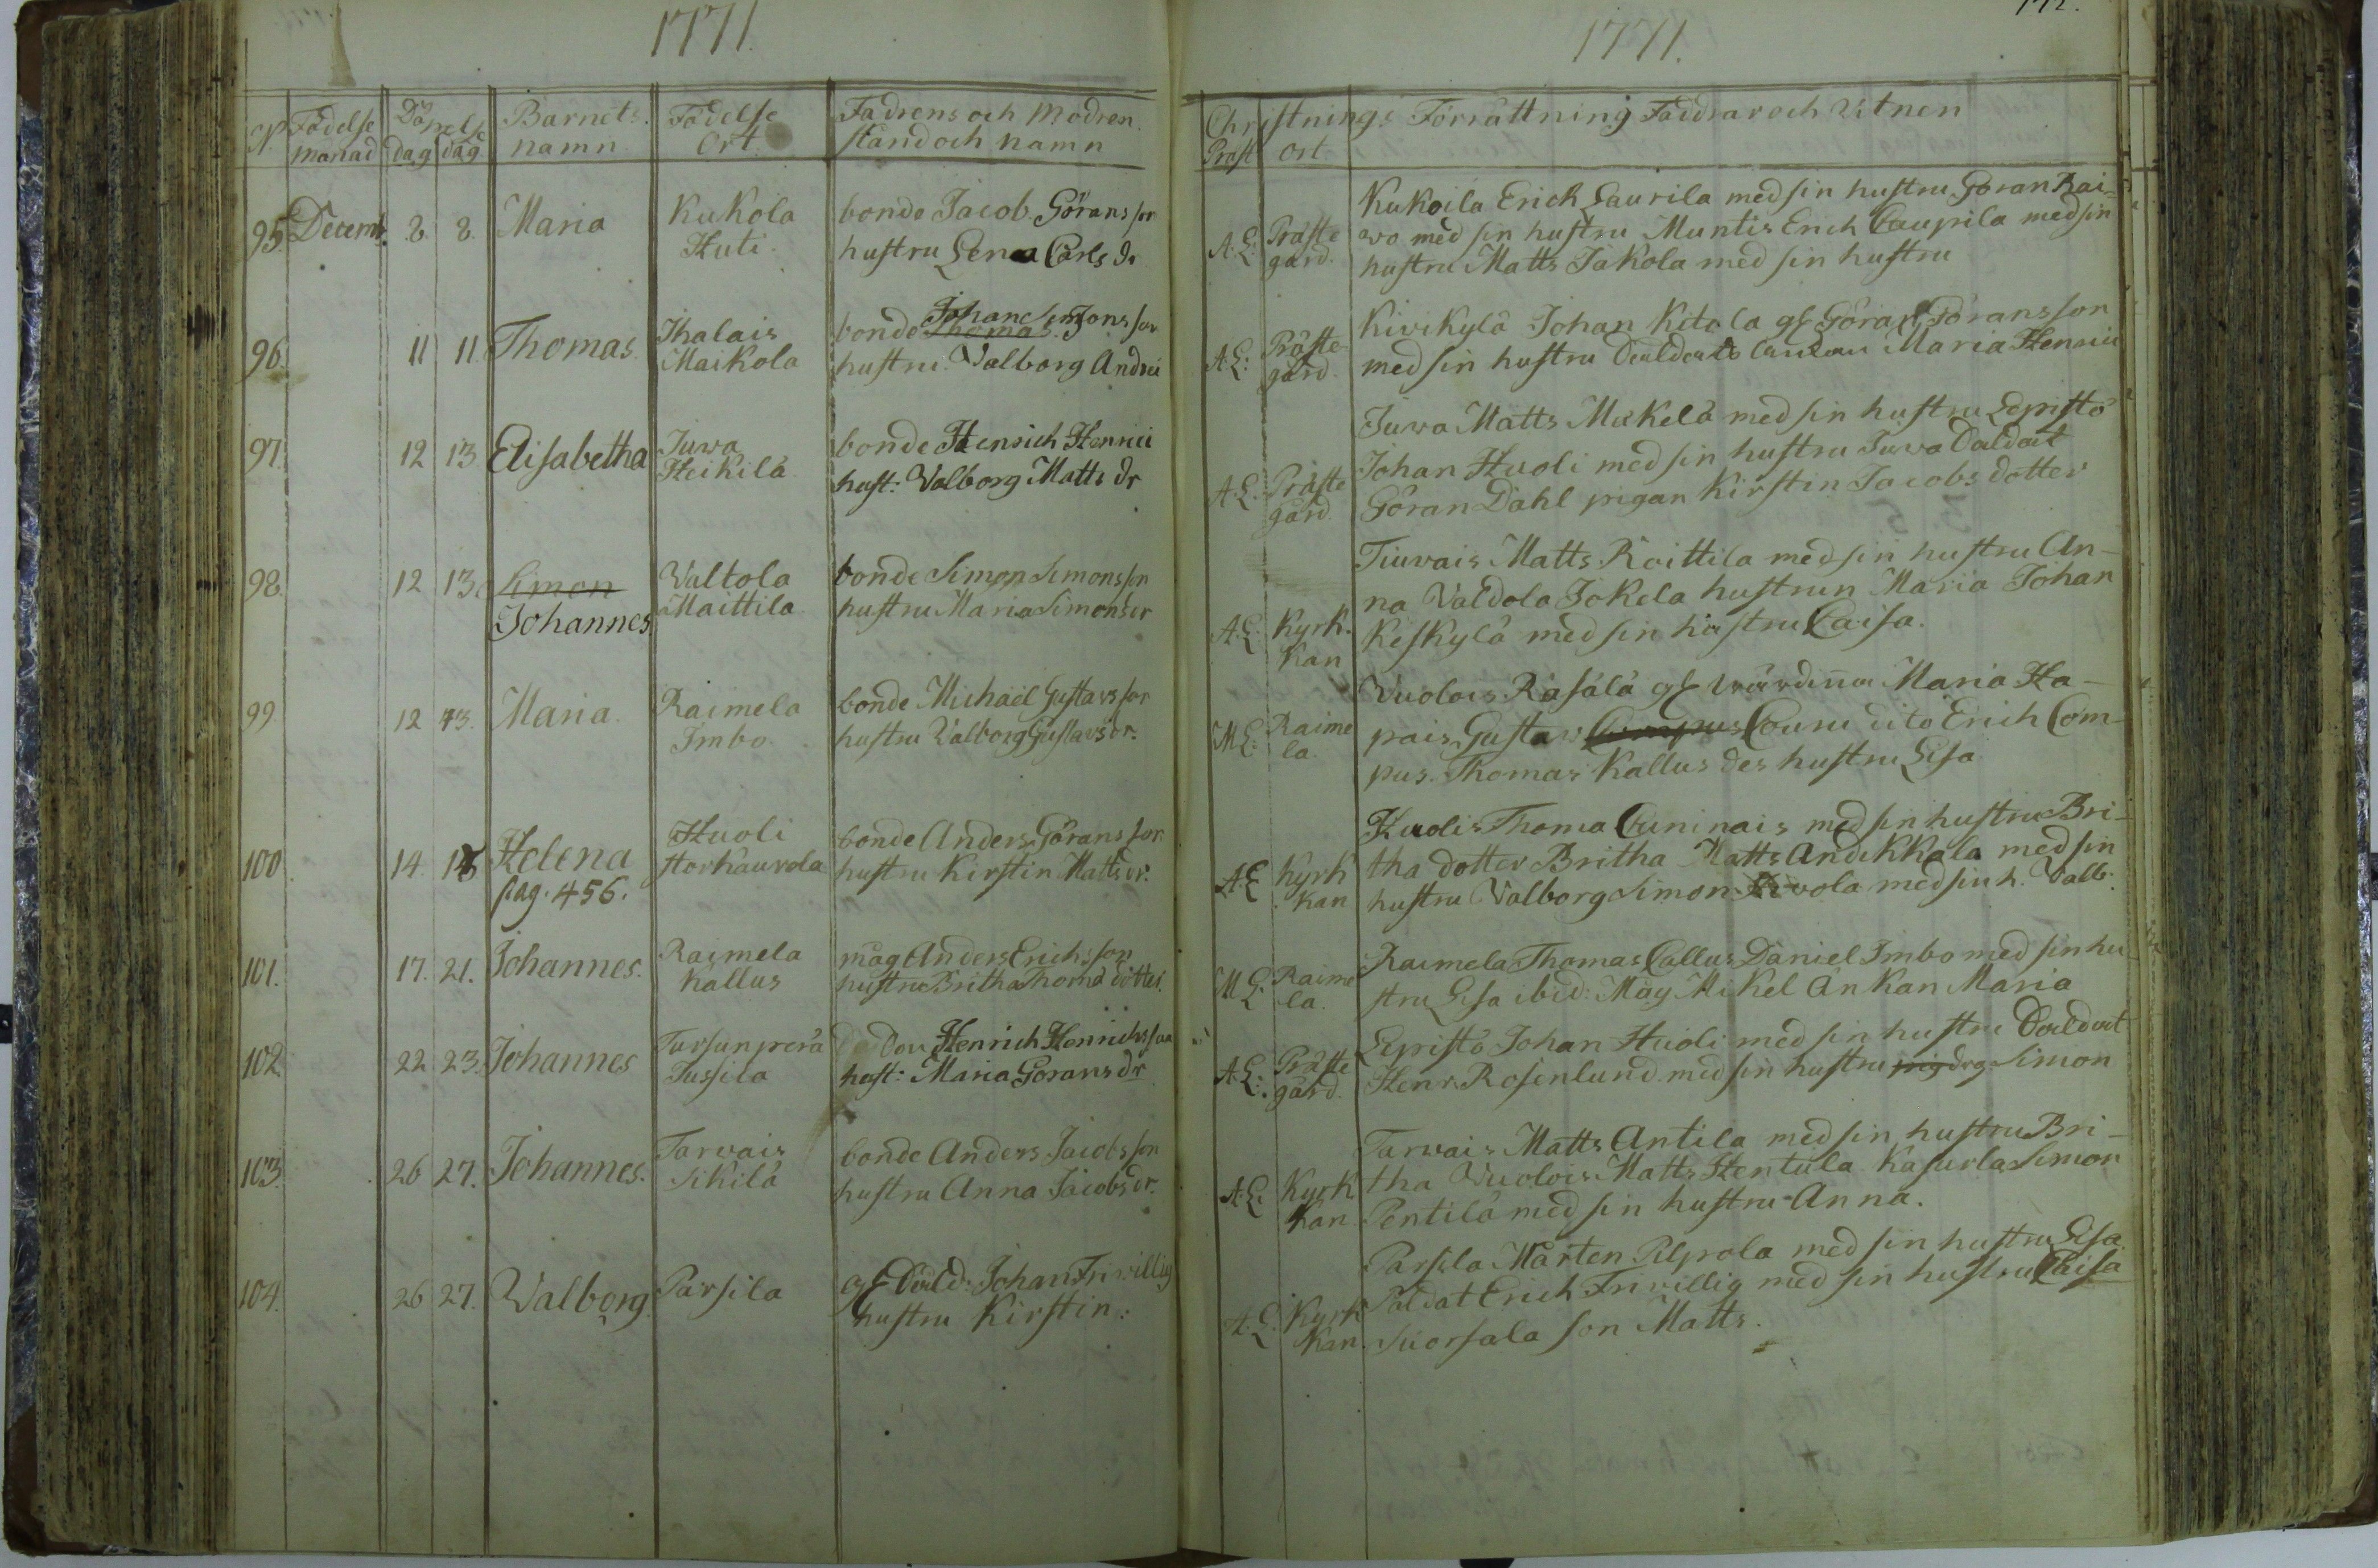 1771.
N. Födelse månad Döpelse dag dag Barnets namn Födelse Ort Fadrens och Modren stånd och namn
95 Decemb. 8. 8. Maria Kukola bonde Jacob Görans son
Huti. hustru Lena Carls dr
96. 11 11. Thomas. Ihalais bonde Thomas Johan Simons son
Maikola hustru Valborg Andrei
97. 12 13 Elisabetha Juva bonde Henrich Henrici
Heikilä hust: Valborg Matts dr
98. 12 13 Simon Valtola bonde Simon Simonsson
Johannes Maittila hustru Maria Simonsdr
99 12 13. Maria. Raimela bonde Michaël Gustavs son
Imbo. hustru Valborg Gustavs dr.
100 14. 18 Helena Huoli bonde Anders Görans son
pag. 456. storkaurola hustru Kirstin Matts dr.
101. 17. 21. Johannes. Raimela måg Anders Erichsson
Kallus hustru Britha Thoma dotter.
102. 22 23. Johannes Tursunperä Henrich Henrichsson
Tussila hust: Maria Görans dr
103. 26 27. Johannes. Tarvais bonde Anders Jacobsson
Sikilä hustru Anna Jacobs dr.
104. 26 27. Valborg. Parsila Johan Friwillig
hustru Kirstin.
172.
1771.
Christnings Förrättning Faddrar och Vitnen
Präst ort
Kukoila Erich Laurila med sin hustru Göran Rai-
A. L: Präste wo med sin hustru Muntis Erich Caupila med sin
gård. hustru Matts Jakola med sin hustru
Kivikylä Johan Kitola gl Göran Göransson
A. L: Präste gård. med sin hustru Maria Henrici
Juva Matts Mickelä med sin hustru Lepistö
Johan Huoli med sin hustru Juva
A. L. Präste gård. Göran Dahl pigan Kirstin Jacobs dotter
Tiuvais Matts Roittila med sin hustru An-
na Valdola Jokela hustrun Maria Johan
A. L: Kyrkkan Keskylä med sin hustru Caisa.
Vuolois Rasälä gl wärdinna Maria Ha-
M L: Raimela. pais Gustav Couru dito Erich Com-
pus. Thomas Kallus des hustru Lisa
Huolis Thoma Cuninais med sin hustru Bri-
A. L Kyrkkan tha dotter Britha Matts Andikkala med sin
hustru Valborg Simon med sin h. Valb:
Raimela Thomas Callus Daniel Imbo med sin hu-
M L. Raimela. stru Lisa ibid: Måg Mikel Änkan Maria
Lepistö Johan Huoli med sin hustru
A. L: Präste gård. Henr. Rosenlund med sin hustru Simon
Tarvais Matts Antila med sin hustru Bri-
A. L. Kyrk tha Vuolois Matts Hentula Kasurla Simon
kan Pentilä med sin hustru Anna.
Parsila Mårten Pilpola med sin hustru Lisa
Erich Friwillig med sin hustru Caisa
A. L. Kyrkkan. Suorsala son Matts.